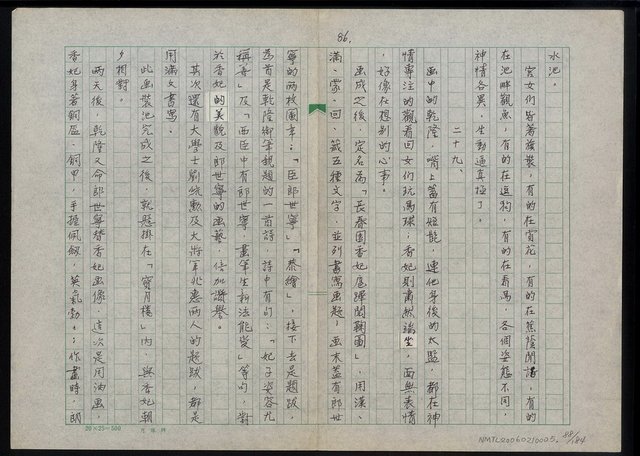 86.
水池。
宮女們皆著旗裝，有的在賞花，有的在蕉蔭閒話，有的
在池畔觀魚，有的在逗狗，有的在看鳥，各個姿態不同，
神情各異，生動逼真極了。
二十九、
畫中的乾隆，嘴上蓄有短髭，連他身後的太監，都在神
情專注的觀看回女們玩馬球；香妃則肅然端坐，面無表情
，好像在想別的心事。
畫成之後，定名為「長春園香妃戲球圖」，用漢、
滿、蒙、回、藏五種文字，並列書寫畫題，畫末蓋有郎世
寧的兩枚圖章：「臣郎世寧」、「恭繪」，接下去是題跋，
為首是乾隆御筆親題的一首詩，詩中有句：「妃子姿容九
稱善」及「西臣中有郎世寧，畫筆生新法能變」等句，對
於香妃的美貌及郎世寧的畫藝，倍加讚譽。
其次還有大學士劉統勳及大將軍兆惠兩人的題跋，都是
用滿文書寫。
此畫裝池完成之後，就懸掛在「寶月樓」內，與香妃朝
夕相對。
兩天後，乾隆又命郎世寧替香妃畫像，這次是用油畫，
香妃身著銅盔、銅甲，手握佩劍，英氣勃勃；作畫時，郎
20×25=500
NMTL20060210005. 88/184